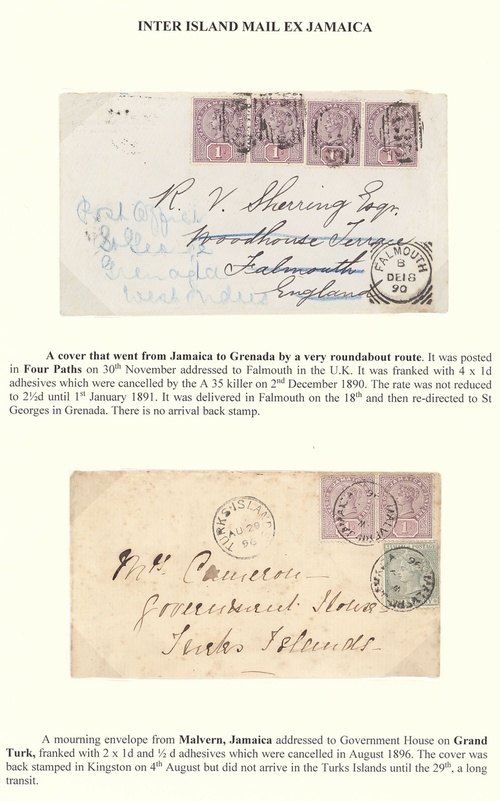 INTER ISLAND MAIL EX JAMAICA
1 1 1 1
R. V. Sherring Esqr.
Woodhouse Terrace
Falmouth
England
Post Office
St George
Grenada
West Indies
FALMOUTH
B
DE 18
90
A cover that went from Jamaica to Grenada by a very roundabout route. It was posted
in Four Paths on 30th November addressed to Falmouth in the U.K. It was franked with 4 x 1d
adhesives which were cancelled by the A 35 killer on 2nd December 1890. The rate was not reduced
to 2½d until 1st January 1891. It was delivered in Falmouth on the 18th and then re-directed to St
Georges in Grenada. There is no arrival back stamp.
TURKS-ISLAND
AU 29
96
Mrs Cameron
Government House
Turks Islands
A mourning envelope from Malvern, Jamaica addressed to Government House on Grand
Turk, franked with 2 x 1d and ½ d adhesives which were cancelled in August 1896. The cover was
back stamped in Kingston on 4th August but did not arrive in the Turks Islands until the 29th, a long
transit.